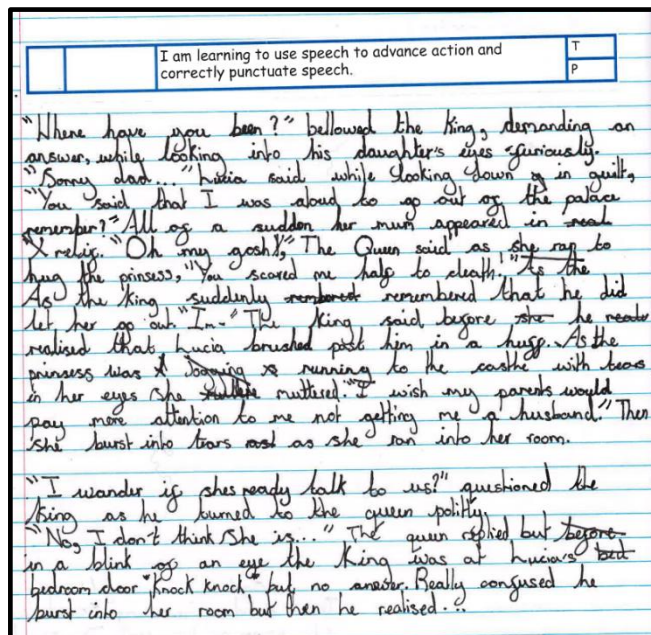 I am learning to use speech to advance action and
T
correctly punctuate speech.
P
"Where have you been?" bellowed the King, demanding an
answer, while looking into his daughter's eyes furiously.
"Sorry dad..." Lucia said while looking down in guilt,
"You said that I was aloud to go out of the palace
remember?" All of a sudden her mum appeared in
relif. "Oh my gosh!," The Queen said as she ran to
hug the prinsess, "You scared me half to death!" As the
As the King suddenly remembered that he did
let her go out. "Im-" The King said before she he
realised that Lucia brushed past him in a huff. As the
prinsess was running to the castle with tears
in her eyes she muttered. "I wish my parents would
pay more attention to me not getting me a husband." Then
she burst into tears as she ran into her room.
"I wander if shes ready talk to us?" questioned the
King as he turned to the queen politly.
"No, I don't think she is..." The queen replied but before
in a blink of an eye the King was at Lucia's bed
bedroom door "knock knock" but no answer. Really confused he
burst into her room but then he realised...